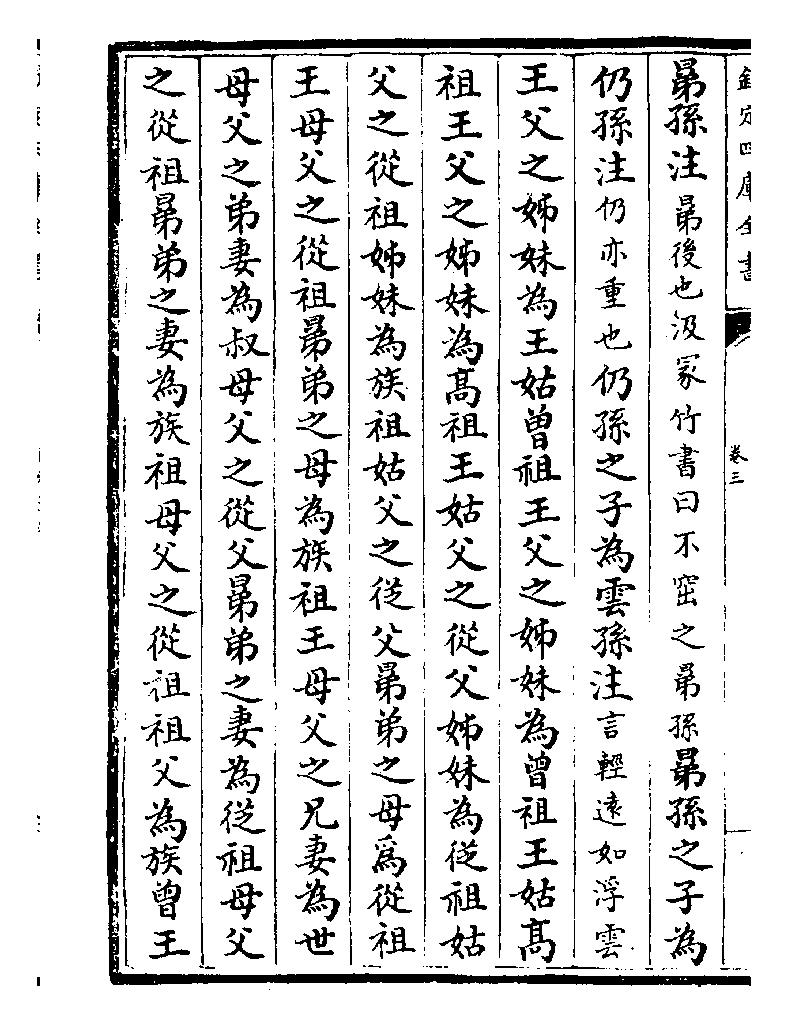 欽定四庫全書
卷三
晜孫注晜後也汲冢竹書曰不窋之晜孫晜孫之子為
仍孫注仍亦重也仍孫之子為雲孫注言輕遠如浮雲
王父之姊妹為王姑曾祖王父之姊妹為曾祖王姑髙
祖王父之姊妹為髙祖王姑父之從父姊妹為從祖姑
父之從祖姊妹為族祖姑父之從父晜弟之母爲從祖
王母父之從祖晜弟之母為族祖王母父之兄妻為世
母父之弟妻為叔母父之從父晜弟之妻為從祖母父
之從祖晜弟之妻為族祖母父之從祖祖父為族曾王